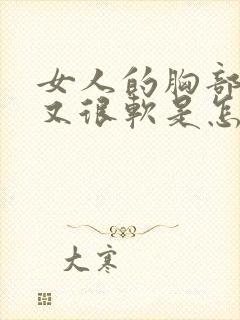 女人的胸部
又很软是怎
大寒